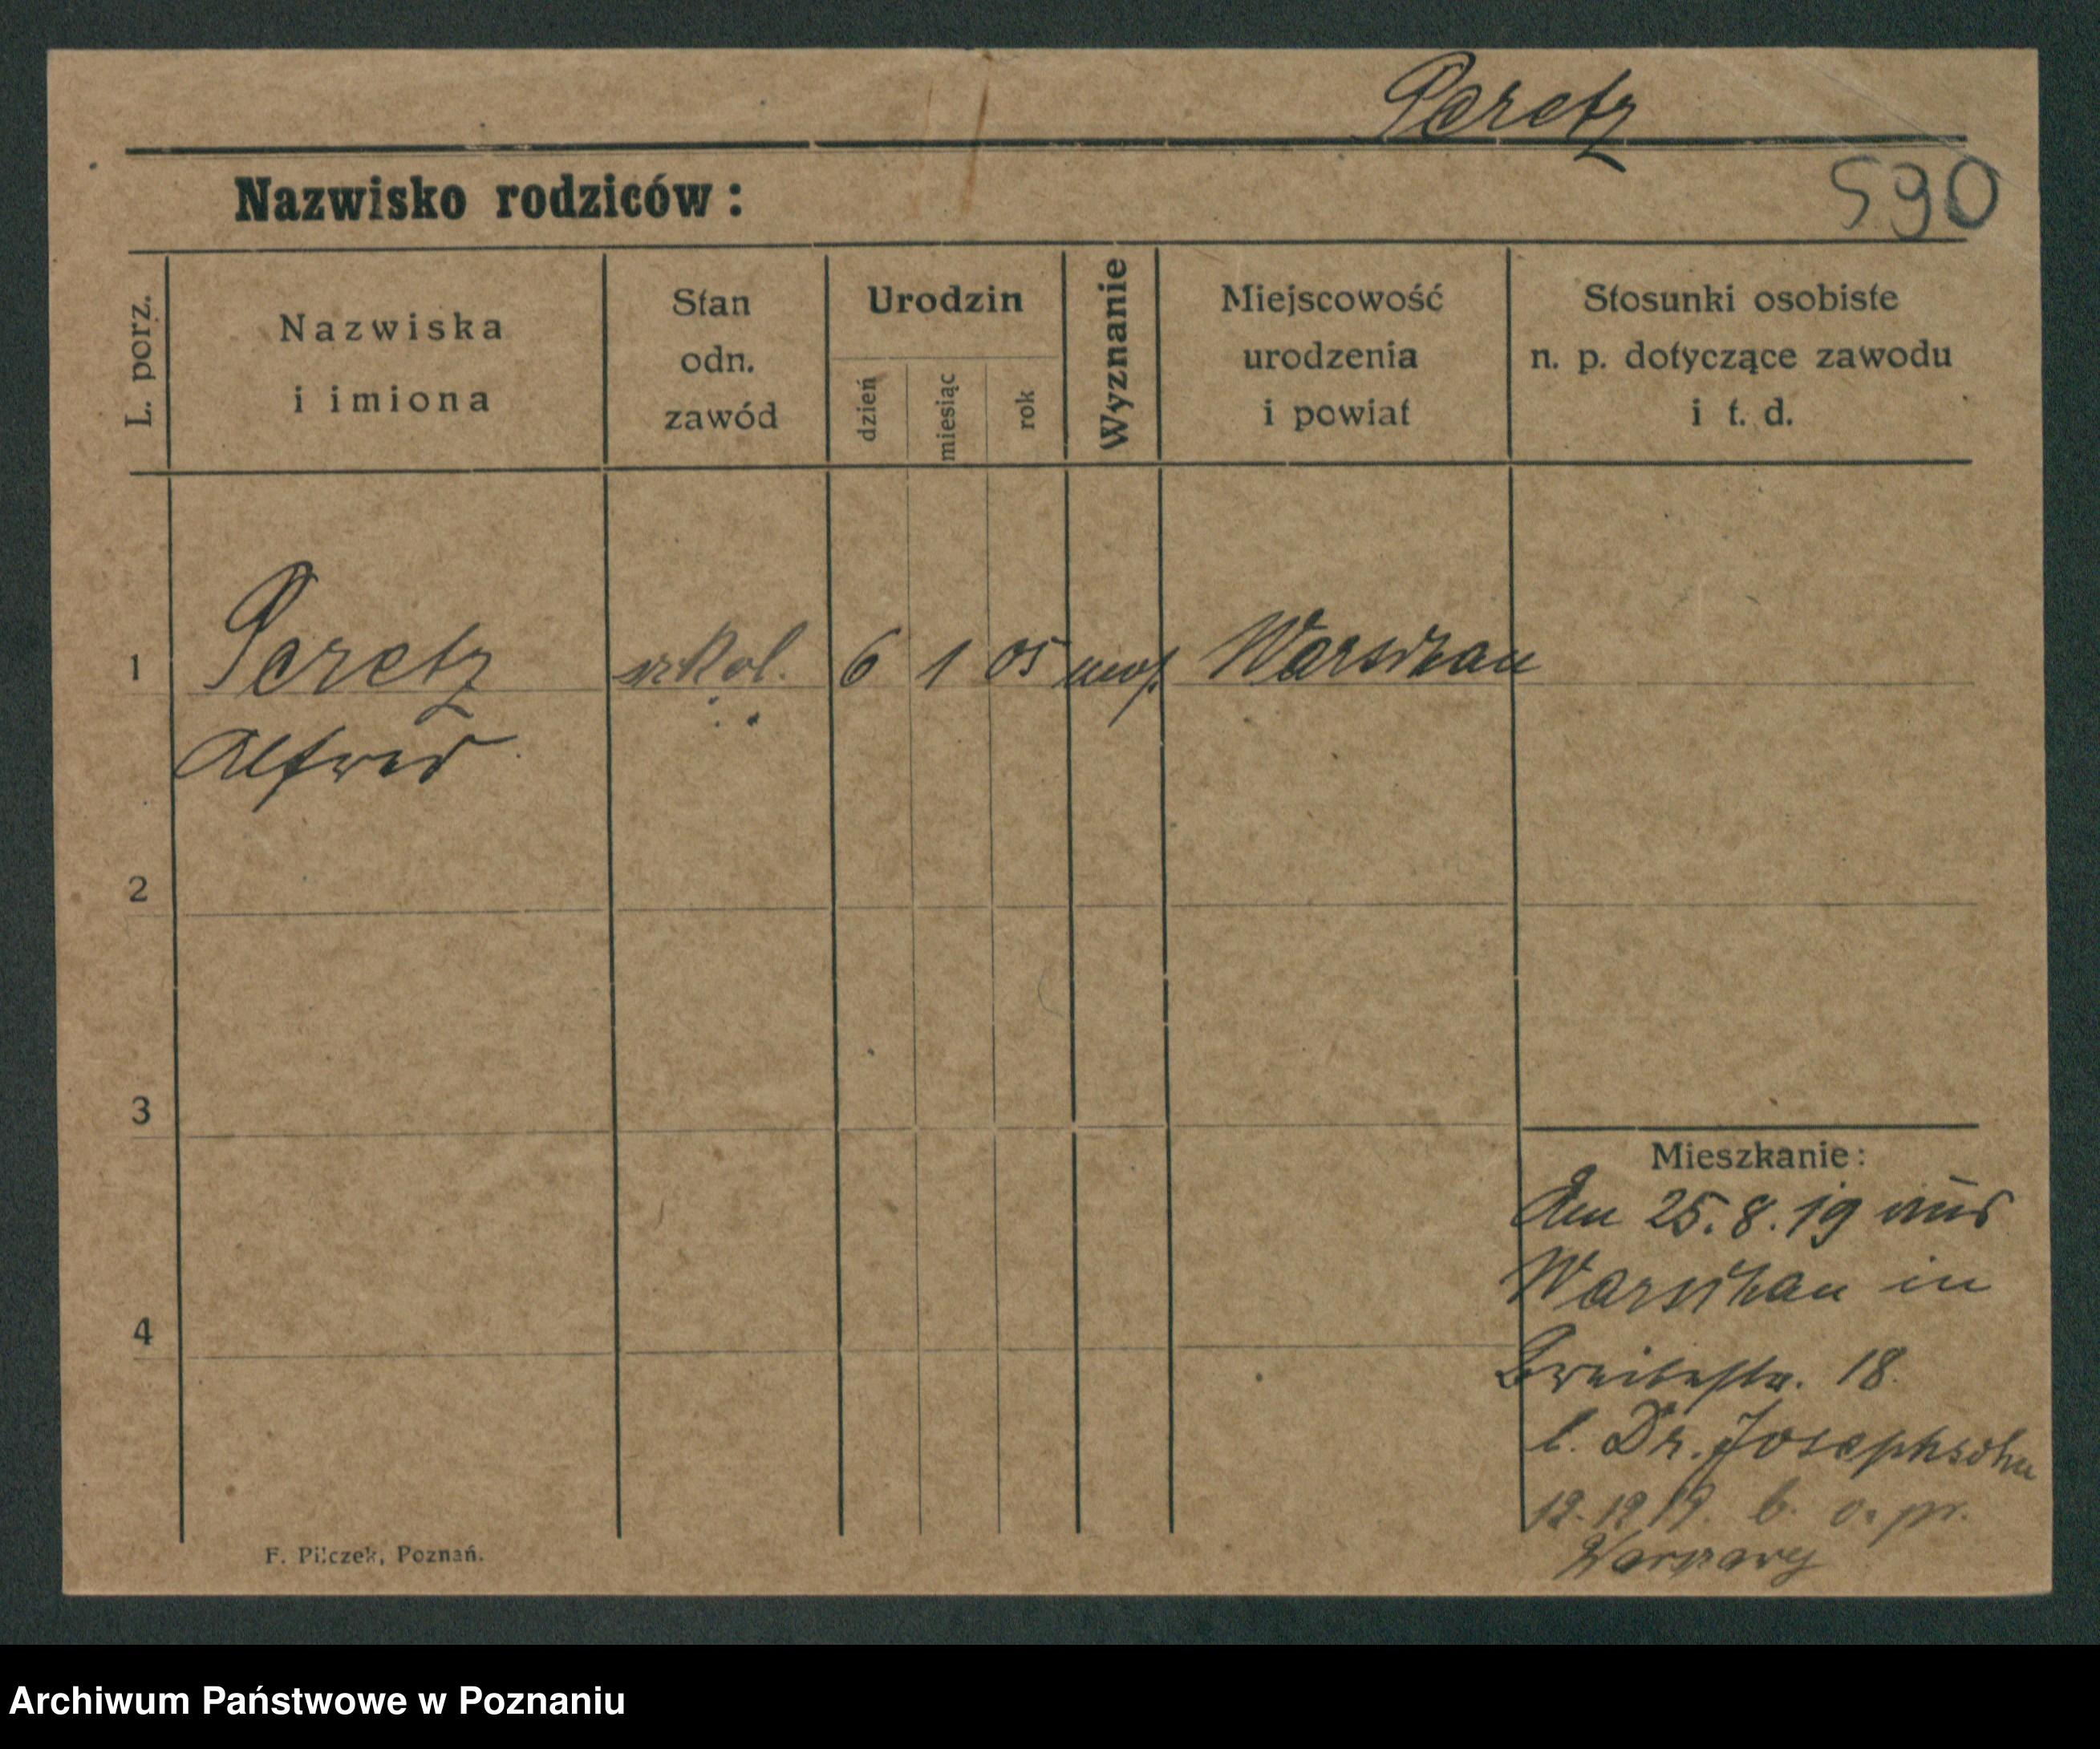 Peretz
Nazwisko rodziców:
590
L. porz.
Nazwiska
i imiona
Stan
odn.
zawód
Urodzin
dzień
miesiąc
rok
Wyznanie
Miejscowość
urodzenia
i powiat
Stosunki osobiste
n. p. dotyczące zawodu
i t. d.
1 Peretz szkol. 6 1 05 mos. Warschau
Alfred
2
3
4
Mieszkanie:
Am 25.8.19 aus
Warschau in
Breitestr. 18.
b. Dr. Josephsohn
12.12 19. b. o. pr.
Warszawy
F. Pilczek, Poznań.
Archiwum Państwowe w Poznaniu